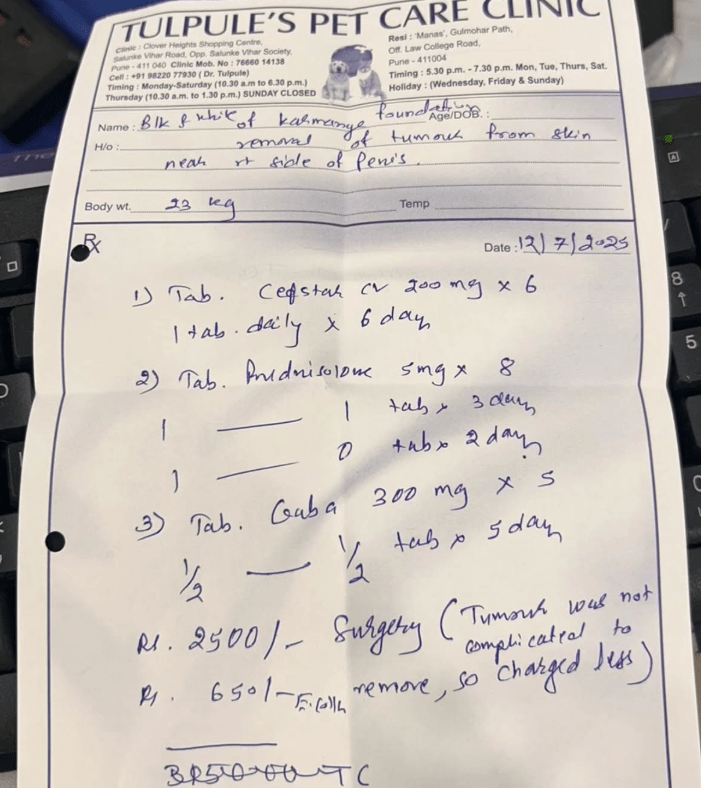 TULPULE'S PET CARE CLINIC
Clinic : Clover Heights Shopping Centre,
Salunke Vihar Road, Opp. Salunke Vihar Society,
Pune - 411 040 Clinic Mob. No : 76660 14138
Cell : +91 98220 77930 ( Dr. Tulpule)
Timing : Monday-Saturday (10.30 a.m to 6.30 p.m.)
Thursday (10.30 a.m. to 1.30 p.m.) SUNDAY CLOSED
Resi : 'Manas', Gulmohar Path,
Off. Law College Road,
Pune - 411004
Timing : 5.30 p.m. - 7.30 p.m. Mon, Tue, Thurs, Sat.
Holiday : (Wednesday, Friday & Sunday)
Name : Blk & white of karmanye foundation Age/DOB. :
H/o : removal of tumour from skin
near rt sible of Penis.
Body wt. 23 kg Temp
Rx
Date : 12/7/2025
1) Tab. Cefstar CV 200 mg x 6
1 tab. daily x 6 day
2) Tab. Prednisolone 5mg x 8
1 — 1 tab x 3 day
1 — 0 tab x 2 day
3) Tab. Gaba 300 mg x 5
1/2 — 1/2 tab x 5 day
Rs. 2500/- Surgery (Tumour was not
complicated to
Rs. 650/- remove, so charged less)